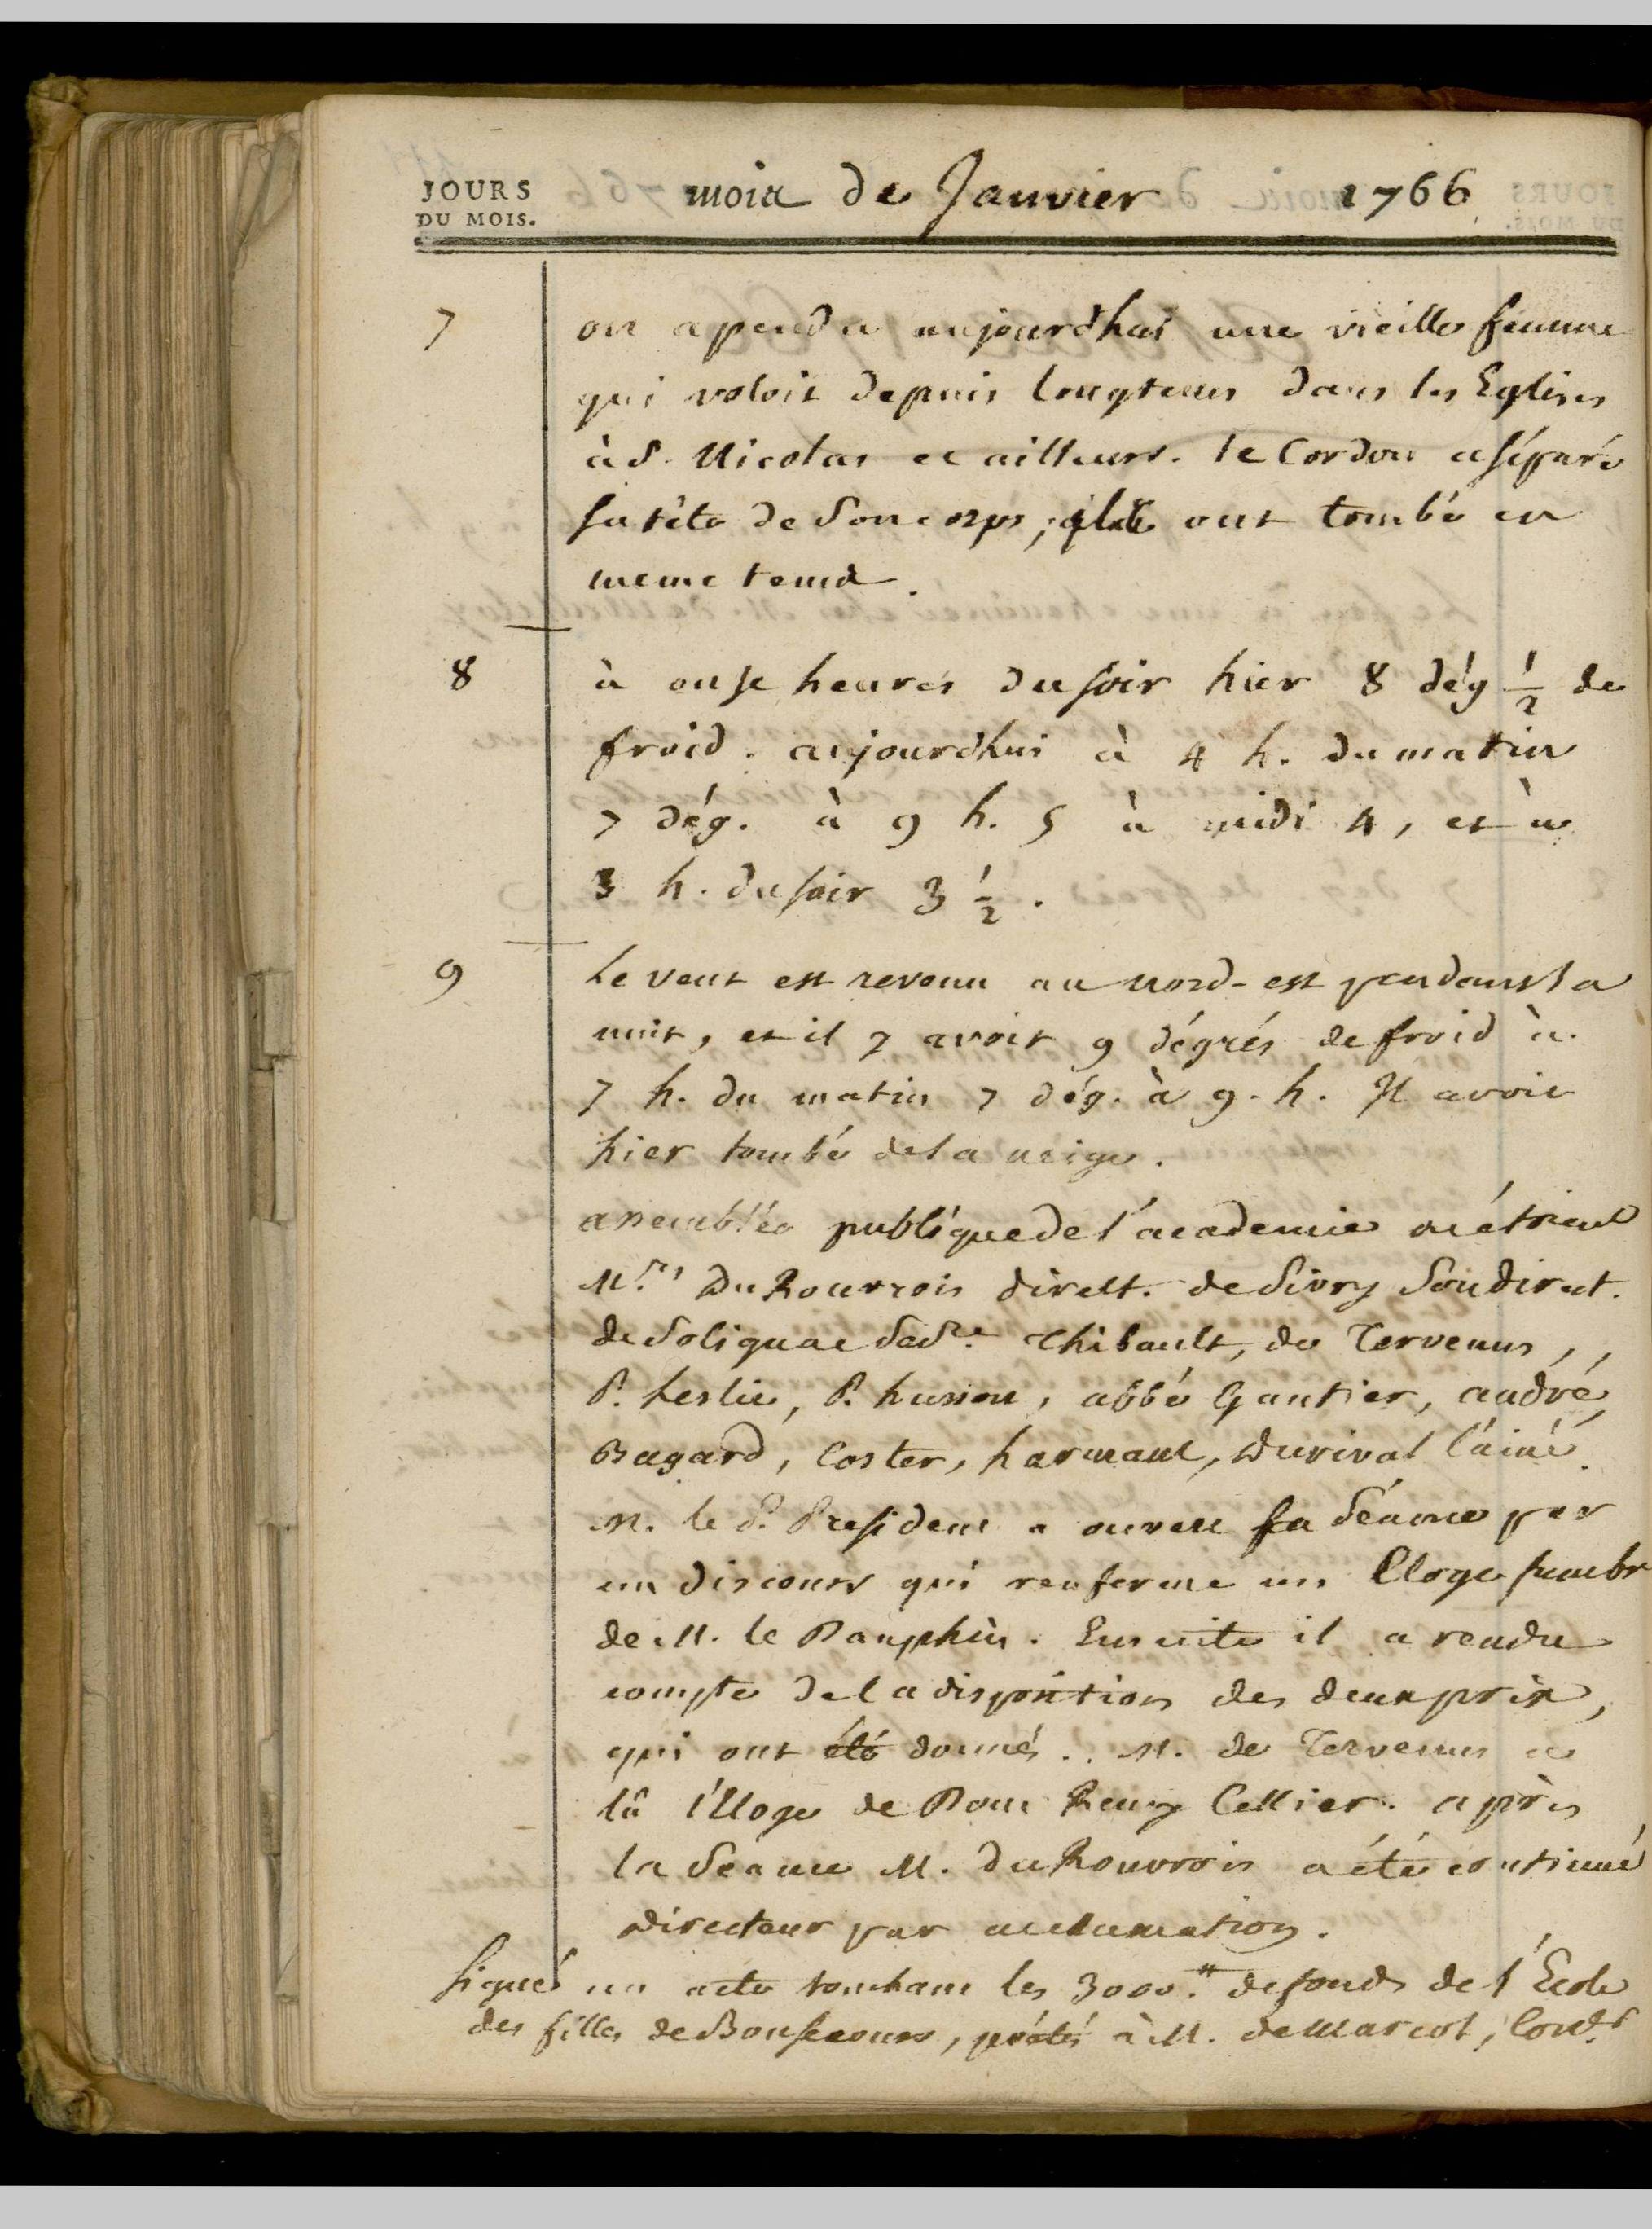 JOURS
DU MOIS.
mois de Janvier 1766
7 on a pendu aujourdhui une vieille femme
qui voloit depuis longtems dans les Eglises
à S. Nicolas et ailleurs. le Cordon a séparé
sa tête de son corps, ont tombé en
meme tems.
8 à onse heures du soir hier 8 dég 1/2 de
froid. aujourdhui à 4 h. du matin
7 dég. à 9 h. 5 à midi 4, et à
3 h. du soir 3 1/2.
9 Le vent est revenu au nord-est pendant la
nuit, et il y avoit 9 dégrés de froid à
7 h. du matin 7 dég. à 9. h. Il avoit
hier tombé de la neige.
assemblée publique de l'academie où étoient
Mrs. Du Rouvrois direct. de Sivry Soudirect.
de Solignac Secre. Thibault, de Tervenus,
P. Leslie, P. husson, abbé Gautier, andré,
Bagard, Coster, harmant, Durival l'ainé.
M. le P. President a ouvert sa Séance par
un discours qui renferme un Eloge funebr
de M. le Dauphin. Ensuite il a rendu
compte de la disposition des deux prix,
qui ont été donnés. M. de Tervenus a
lû l'Eloge de Dom Remy Cellier. après
la Séance M. du Rouvrois a été continué
directeur par acclamation.
signé un acte touchant les 3000.# de fonds de l'Ecole
des filles de Bonsecours, prêtés à M. de Marcol, Conder